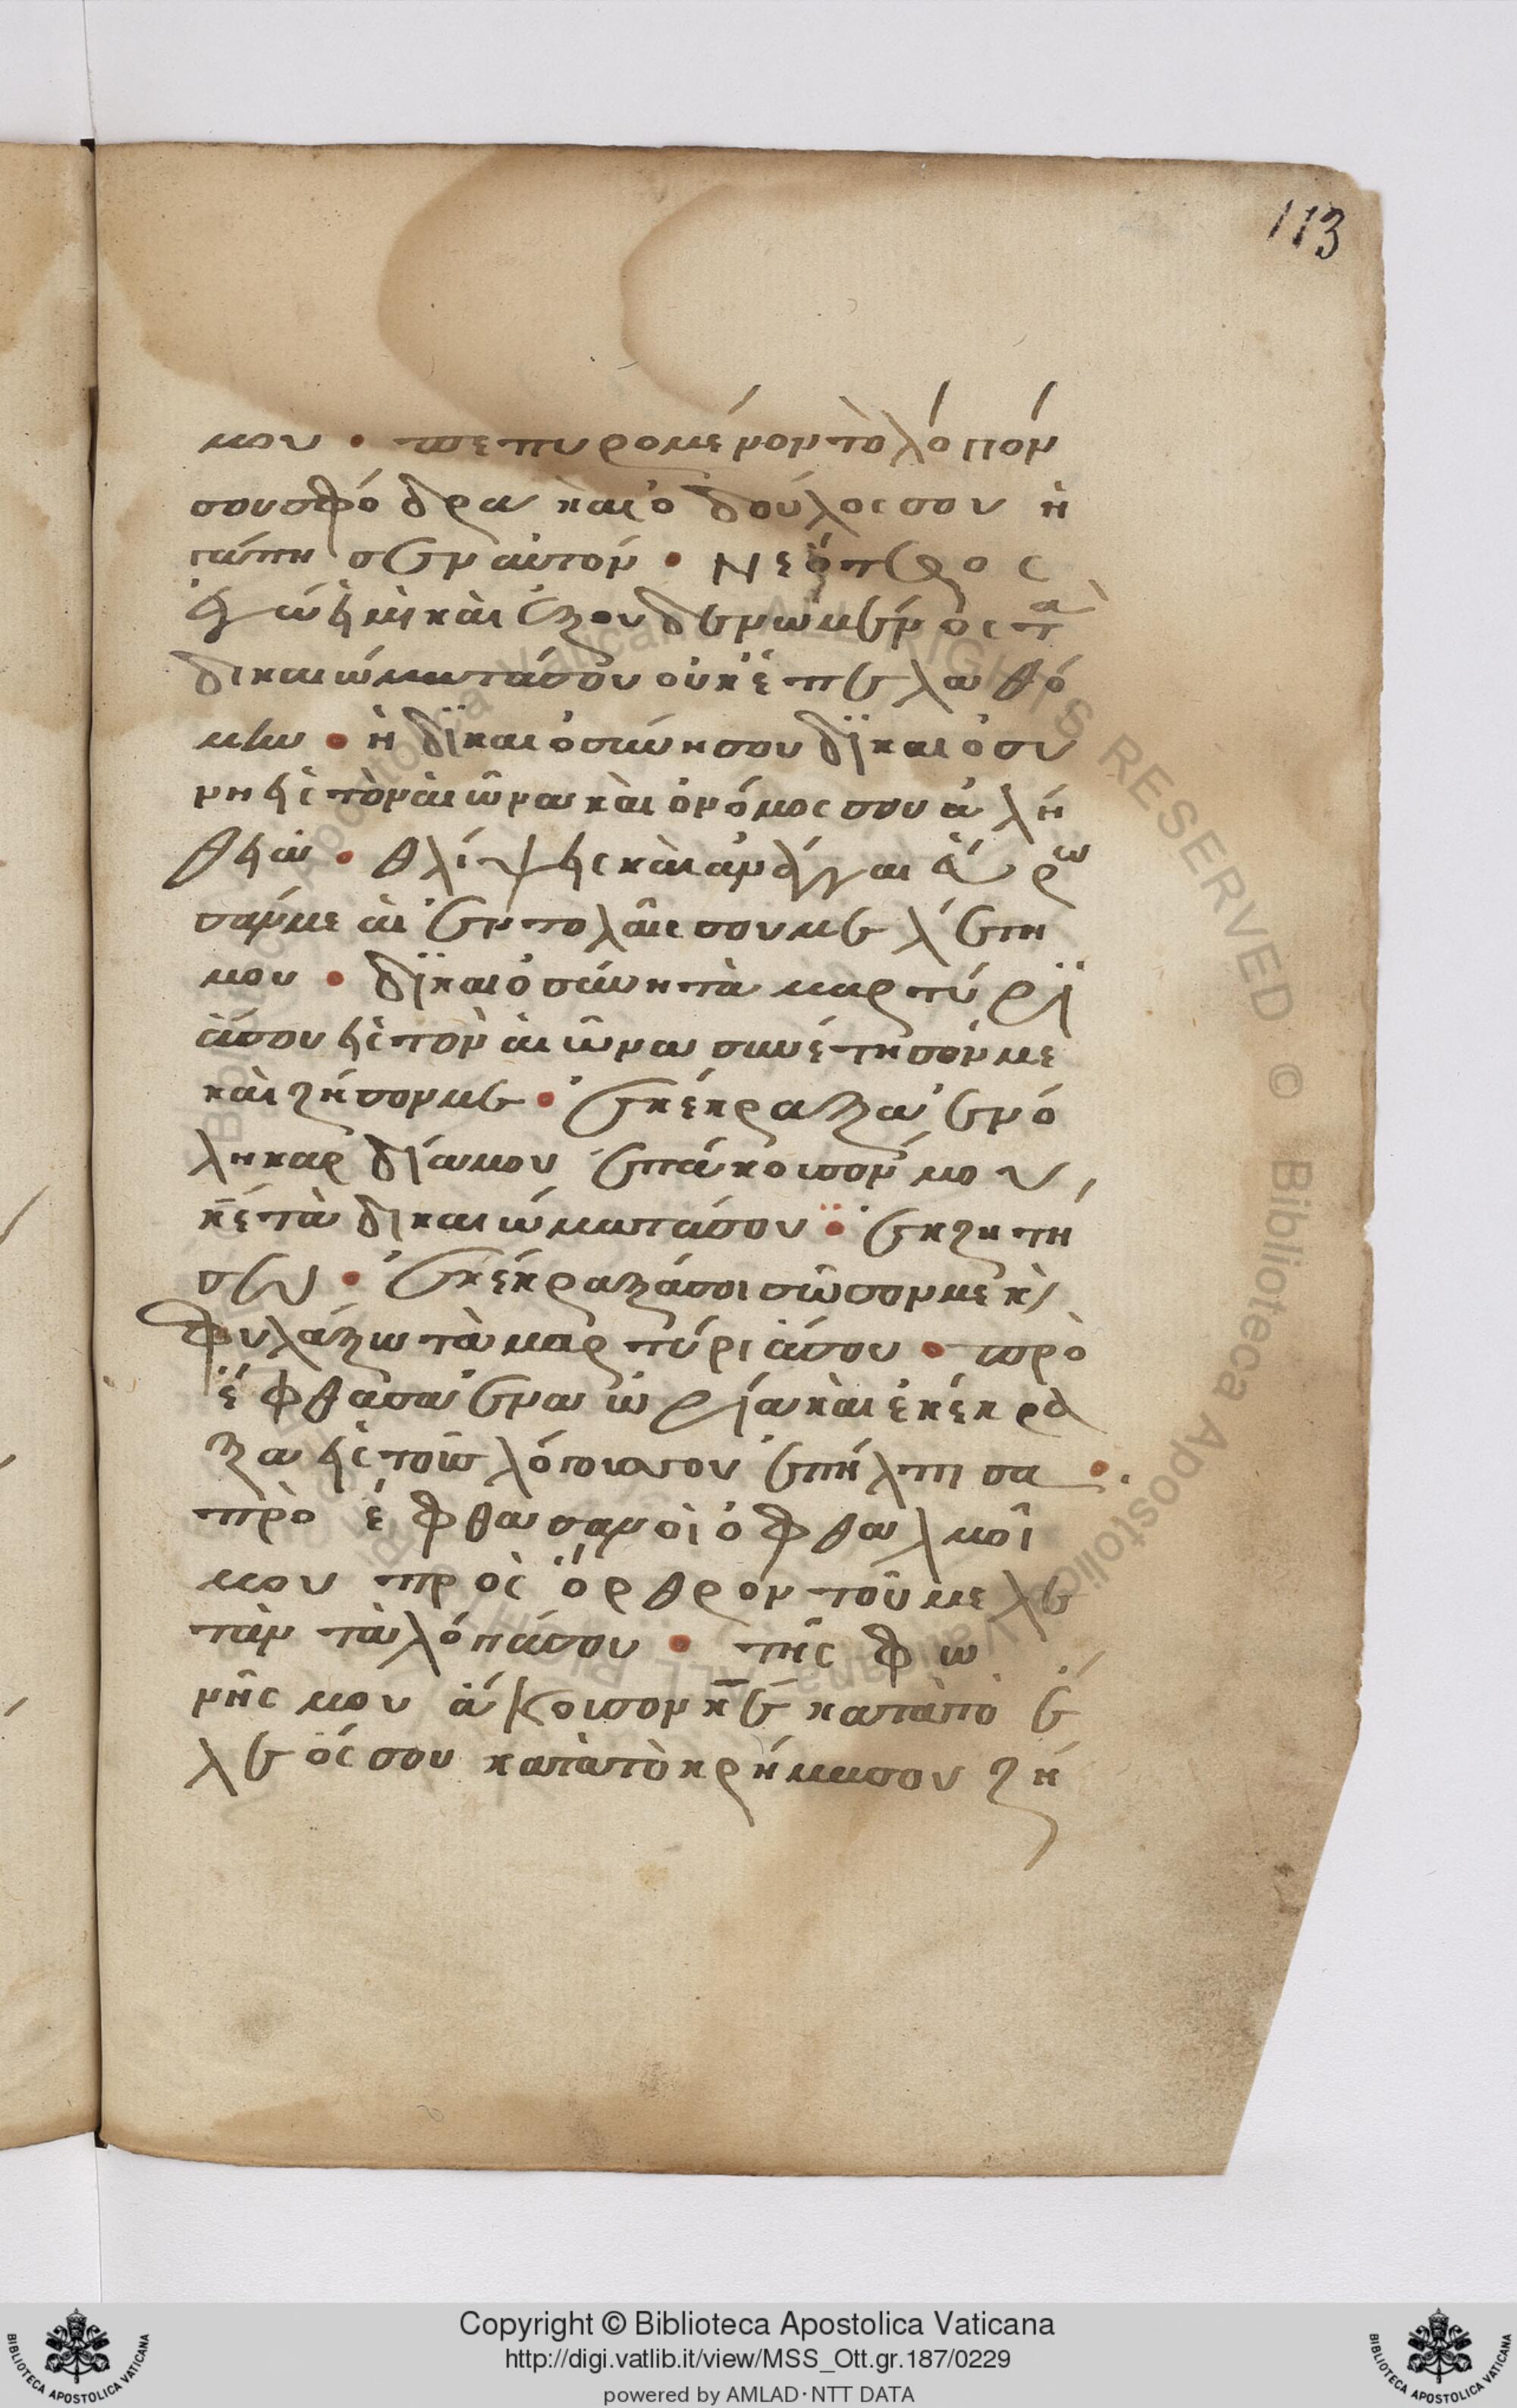 113
μου · πεπυρομένον τὸ λόγιόν
σου σφόδρα καὶ ὁ δούλος σου ἠ
γάπησεν αὐτόν · Νεότερος
ἐγώ εἰμι καὶ ἐξουδενωμένος τὰ
δικαιώματά σου οὐκ ἐπελαθό
μην · ἡ δϊκαιοσύνη σου δϊκαιοσυ
νη εἰς τὸν αἰῶνα καὶ ὁ νόμος σου ἀλή
θεια · θλίψεις καὶ ἀνάγγαι εὕρω
σάν με αἱ ἐντολαῖς σου μελέτη
μου · δϊκαιοσύνη τὰ μαρτύρϊ
ά σου εἰς τὸν αἰῶνα συνέτησόν με
καὶ ζήσον με · ἐκέκραξα ἐν ὅ
λη καρδία μου ἐπάκοισόν μου,
κ̅έ̅ τὰ δικαιώματά σου · ἐκζητή
σω · ἐκέκραξά σοι σῶσον με κὶ
φυλάξω τὰ μαρτύριά σου · προ
έφθασα ἐν ἀωρία καὶ ἐκέκρα
ξα εἰς τοῦς λόγους σου ἐπήλπισα ·.
προέφθασαν οἱ ὀφθαλμοῖ
μου πρὸς ὄρθρον τοῦ μελε
τᾶν τὰ λόγιά σου · τῆς φω
νῆς μου ἄκοισον κ̅ε̅ κατὰ τὸ ἔ
λεός σου κατὰ τὸ κρήμα σου ζή
Copyright © Biblioteca Apostolica Vaticana
http://digi.vatlib.it/view/MSS_Ott.gr.187/0229
powered by AMLAD·NTT DATA